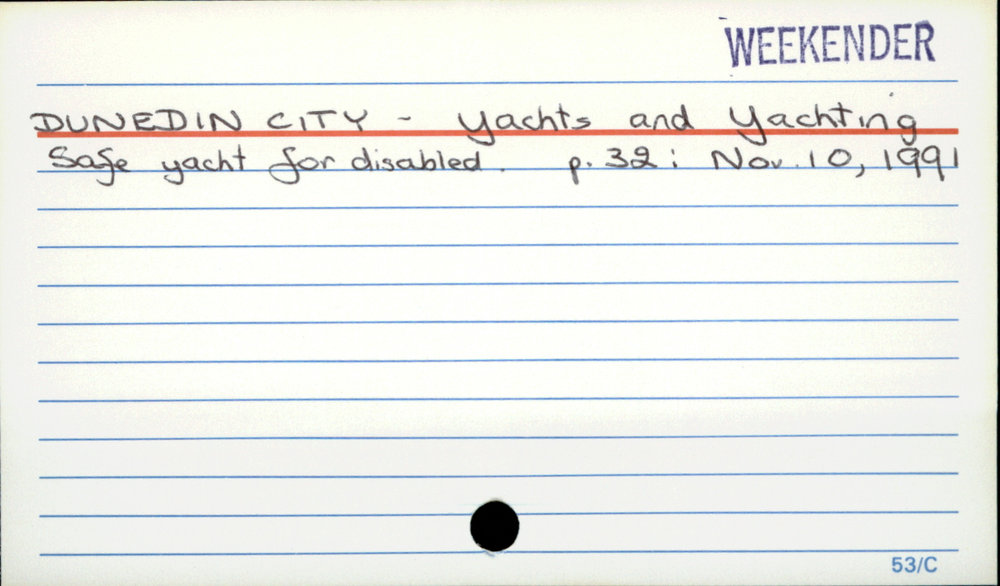 WEEKENDER
DUNEDIN CITY - Yachts and Yachting
Safe yacht for disabled. p. 32: Nov. 10, 1991
53/C